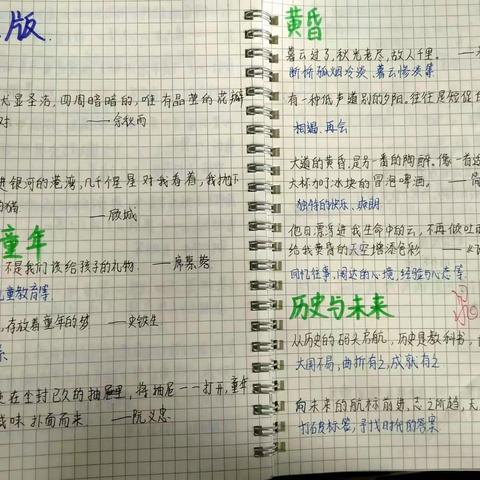 版
尤显圣洁,四周暗暗的,唯有晶莹的花瓣
对 ——余秋雨
进银河的港湾,几千个星星对我看着,我抛下
的锚
——顾城
童年
不是我们该给孩子的礼物. ——席慕蓉
儿童教育等
,存放着童年的梦 ——史铁生
在尘封已久的抽屉里,将抽屉一一打开,童年
味扑面而来. ——阮义忠
黄昏
暮云过了,秋光老尽,故人千里。
断桥孤烟冷淡、暮云惨淡等
有一种低声道别的夕阳。往往是短促
相遇、再会
大道的黄昏,是另一番的陶醉。像一首
大杯加了冰块的冒泡啤酒。
独特的快乐、爽朗
他日漂浮进我生命中的云,不再做
给我黄昏的天空增添色彩
回忆往事,阔达的心境,经验的心态等
历史与未来
从历史的码头启航,历史是教科书,
大国不易,曲折有之,成就有之
向未来的航标前进,志之所趋,
打破标签,寻找时代的答案